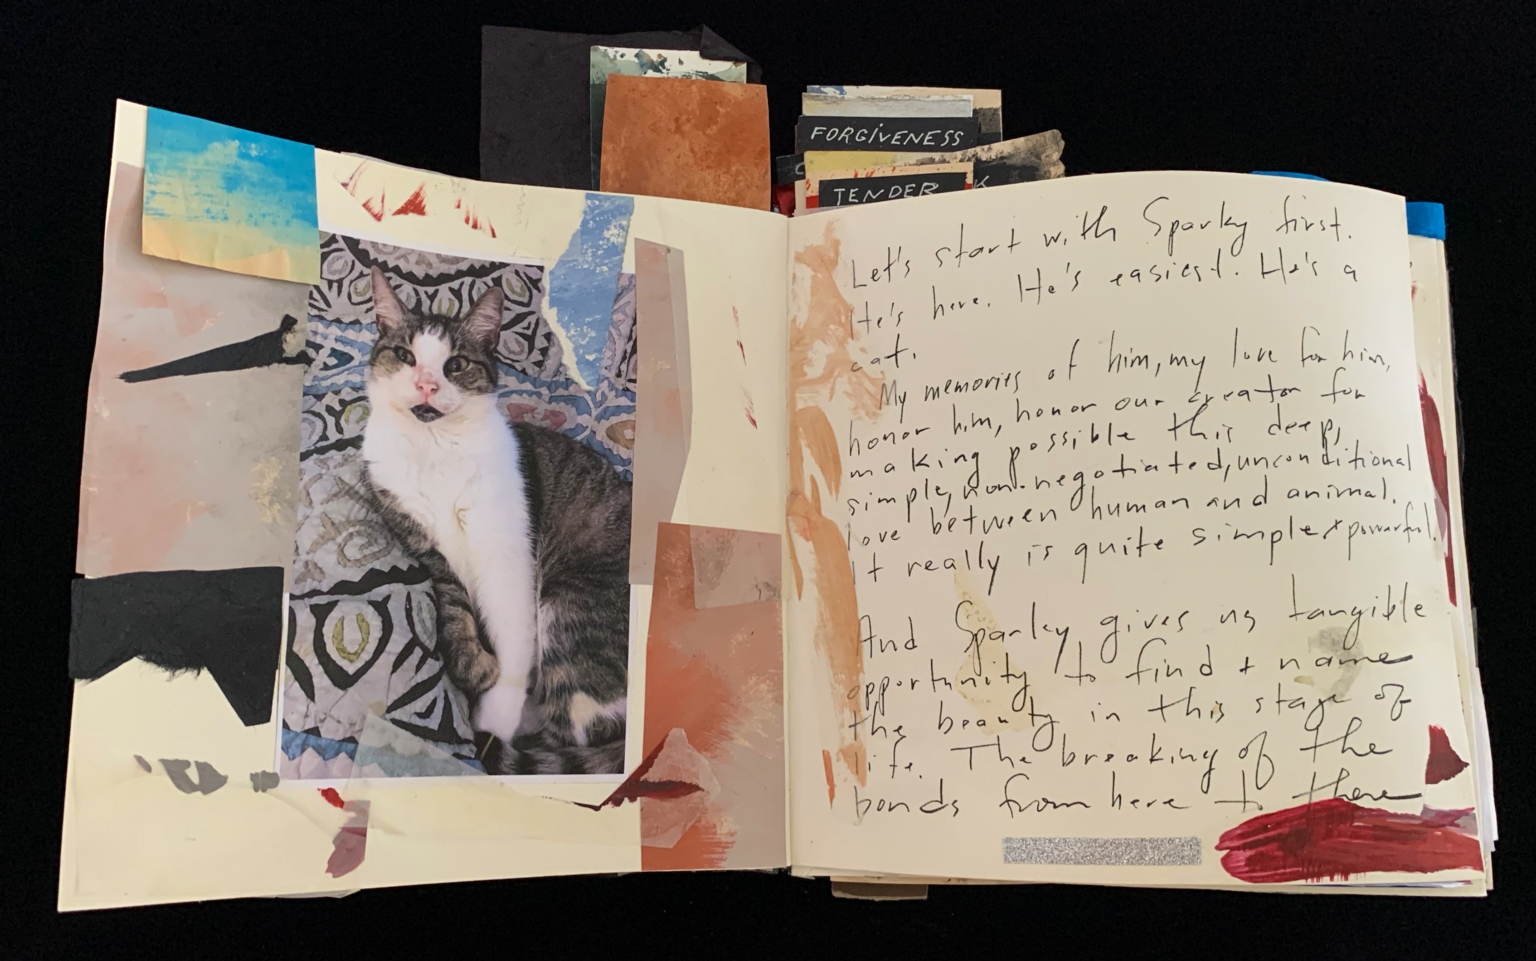 FORGIVENESS
TENDER
Let's start with Sparky first.
He's here. He's easiest. He's a
cat.
My memories of him, my love for him,
honor him, honor our creator for
making possible this deep,
simple, non-negotiated, unconditional
love between human and animal.
It really is quite simple + powerful.
And Sparky gives us tangible
opportunity to find + name
the beauty in this stage of
life. The breaking of the
bonds from here to there